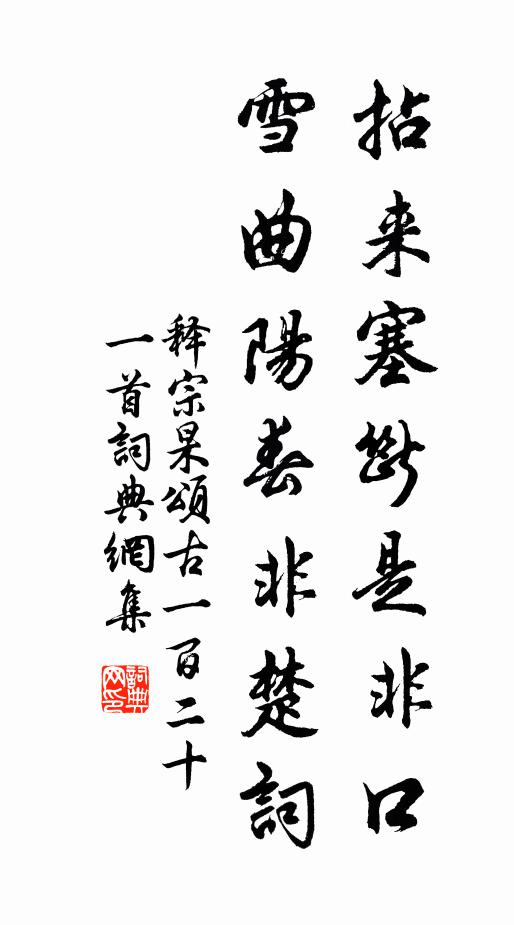 拈来塞断是非口
雪曲陽春非楚詞
释宗杲頌古一百二十
一首詞典網集
詞典网印